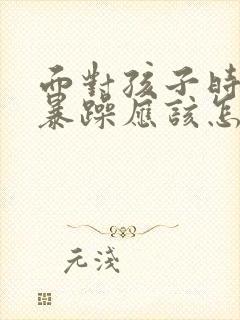 面對孩子時
暴躁應該怎
元淺